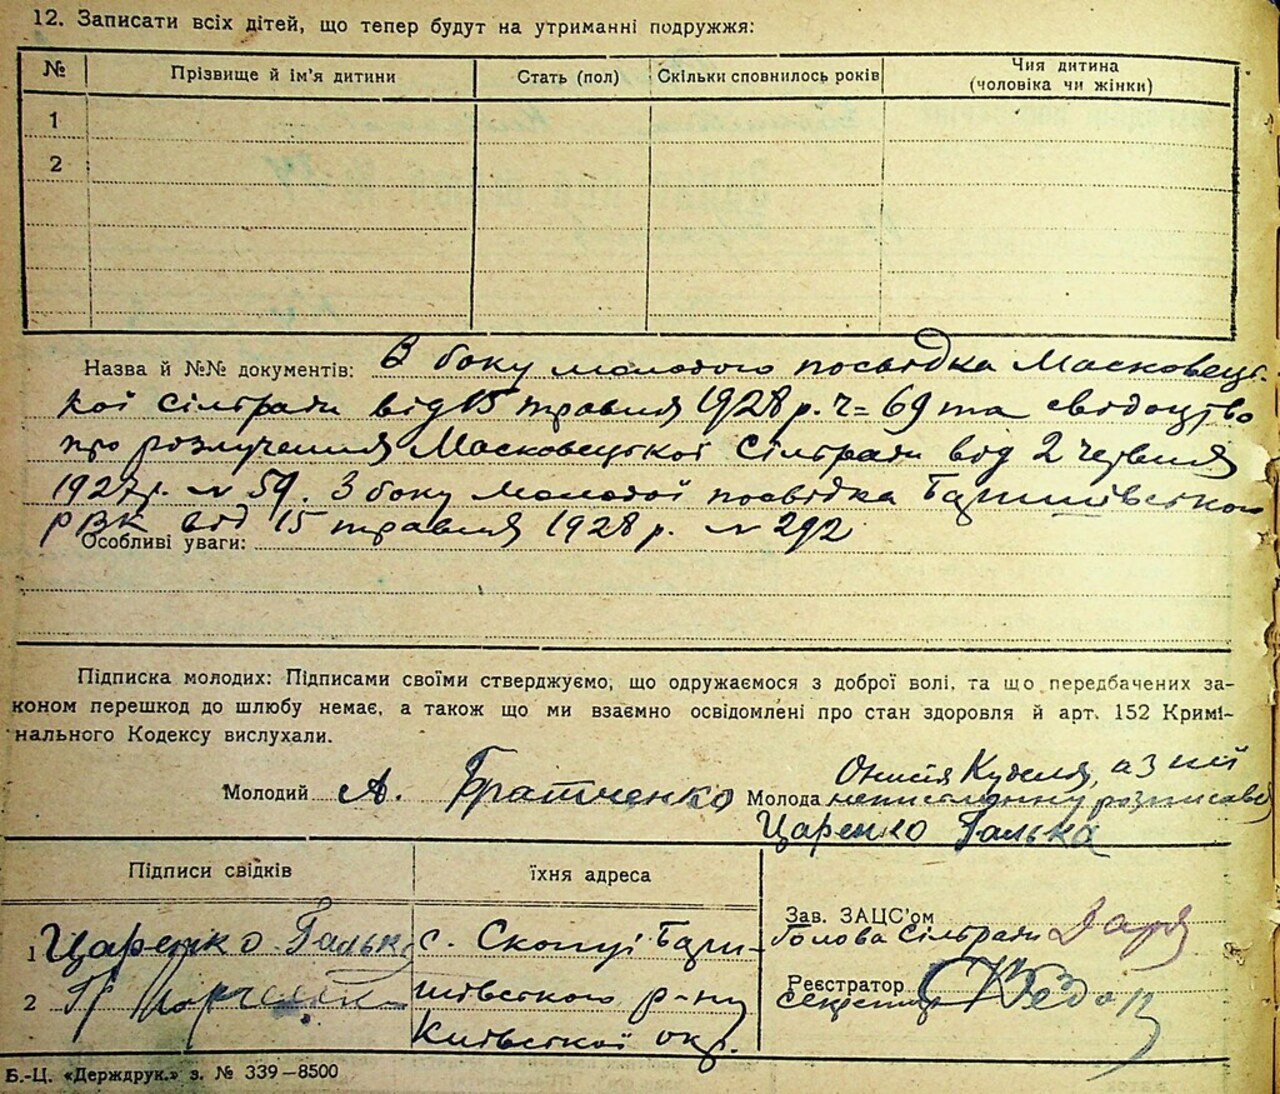 12. Записати всіх дітей, що тепер будут на утриманні подружжя:
№ Прізвище й ім'я дитини Стать (пол) Скільки сповнилось років Чия дитина (чоловіка чи жінки)
1
2
Назва й №№ документів: З боку молодого посвідка Масковець-
кої сільради від 15 травня 1928 р. ч= 69 та свідоцтво
про розлучення Масковецької Сільради від 2 червня
1927 р. N 59. З боку молодої посвідка Баришівського
РВК від 15 травня 1928 р. N 292
Особливі уваги:
Підписка молодих: Підписами своїми стверджуємо, що одружаємося з доброї волі, та що передбачених за-
коном перешкод до шлюбу немає, а також що ми взаємно освідомлені про стан здоровля й арт. 152 Кримі-
нального Кодексу вислухали.
Молодий А. Братченко Молода Онисія Куделя, а з неї
неписьменну розписався
Царенко Галька
Підписи свідків їхня адреса
1 Царенко Галька с. Скопці Бари-
2 Гр шівського р-ну
Київської окр.
Зав. ЗАЦС'ом
Голова Сільради
Реєстратор
секретар
Б.-Ц. «Держдрук.» з. № 339—8500